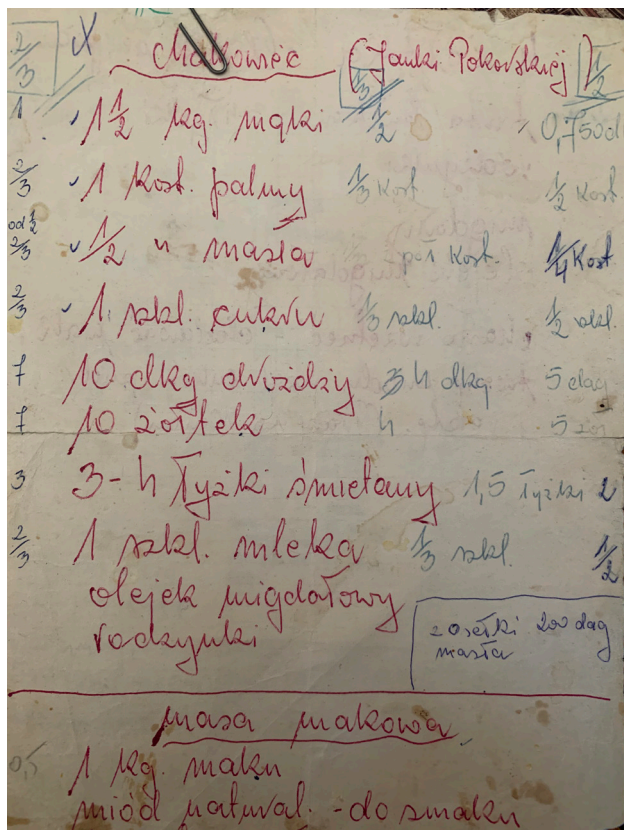 2/3 X Makowiec (Janki Pokorskiej) 1/3 1/2
1 1 1/2 kg. mąki 1/2 0,750d
2/3 1 kost. palmy 1/3 kost 1/2 kost.
od 1/2 2/3 1/2 " masła kost. 1/4 kost
2/3 1 szkl. cukru 1/3 szkl. 1/2 szkl.
7 10 dkg drożdży 4 dkg 5 dag
7 10 żółtek 4 5
3 3-4 łyżki śmietany 1,5 łyżki 2
2/3 1 szkl. mleka 1/3 szkl. 1/2
olejek migdałowy
rodzynki
z osełki 200 dag
masła
masa makowa
0,5 1 kg. maku
miód natural. - do smaku